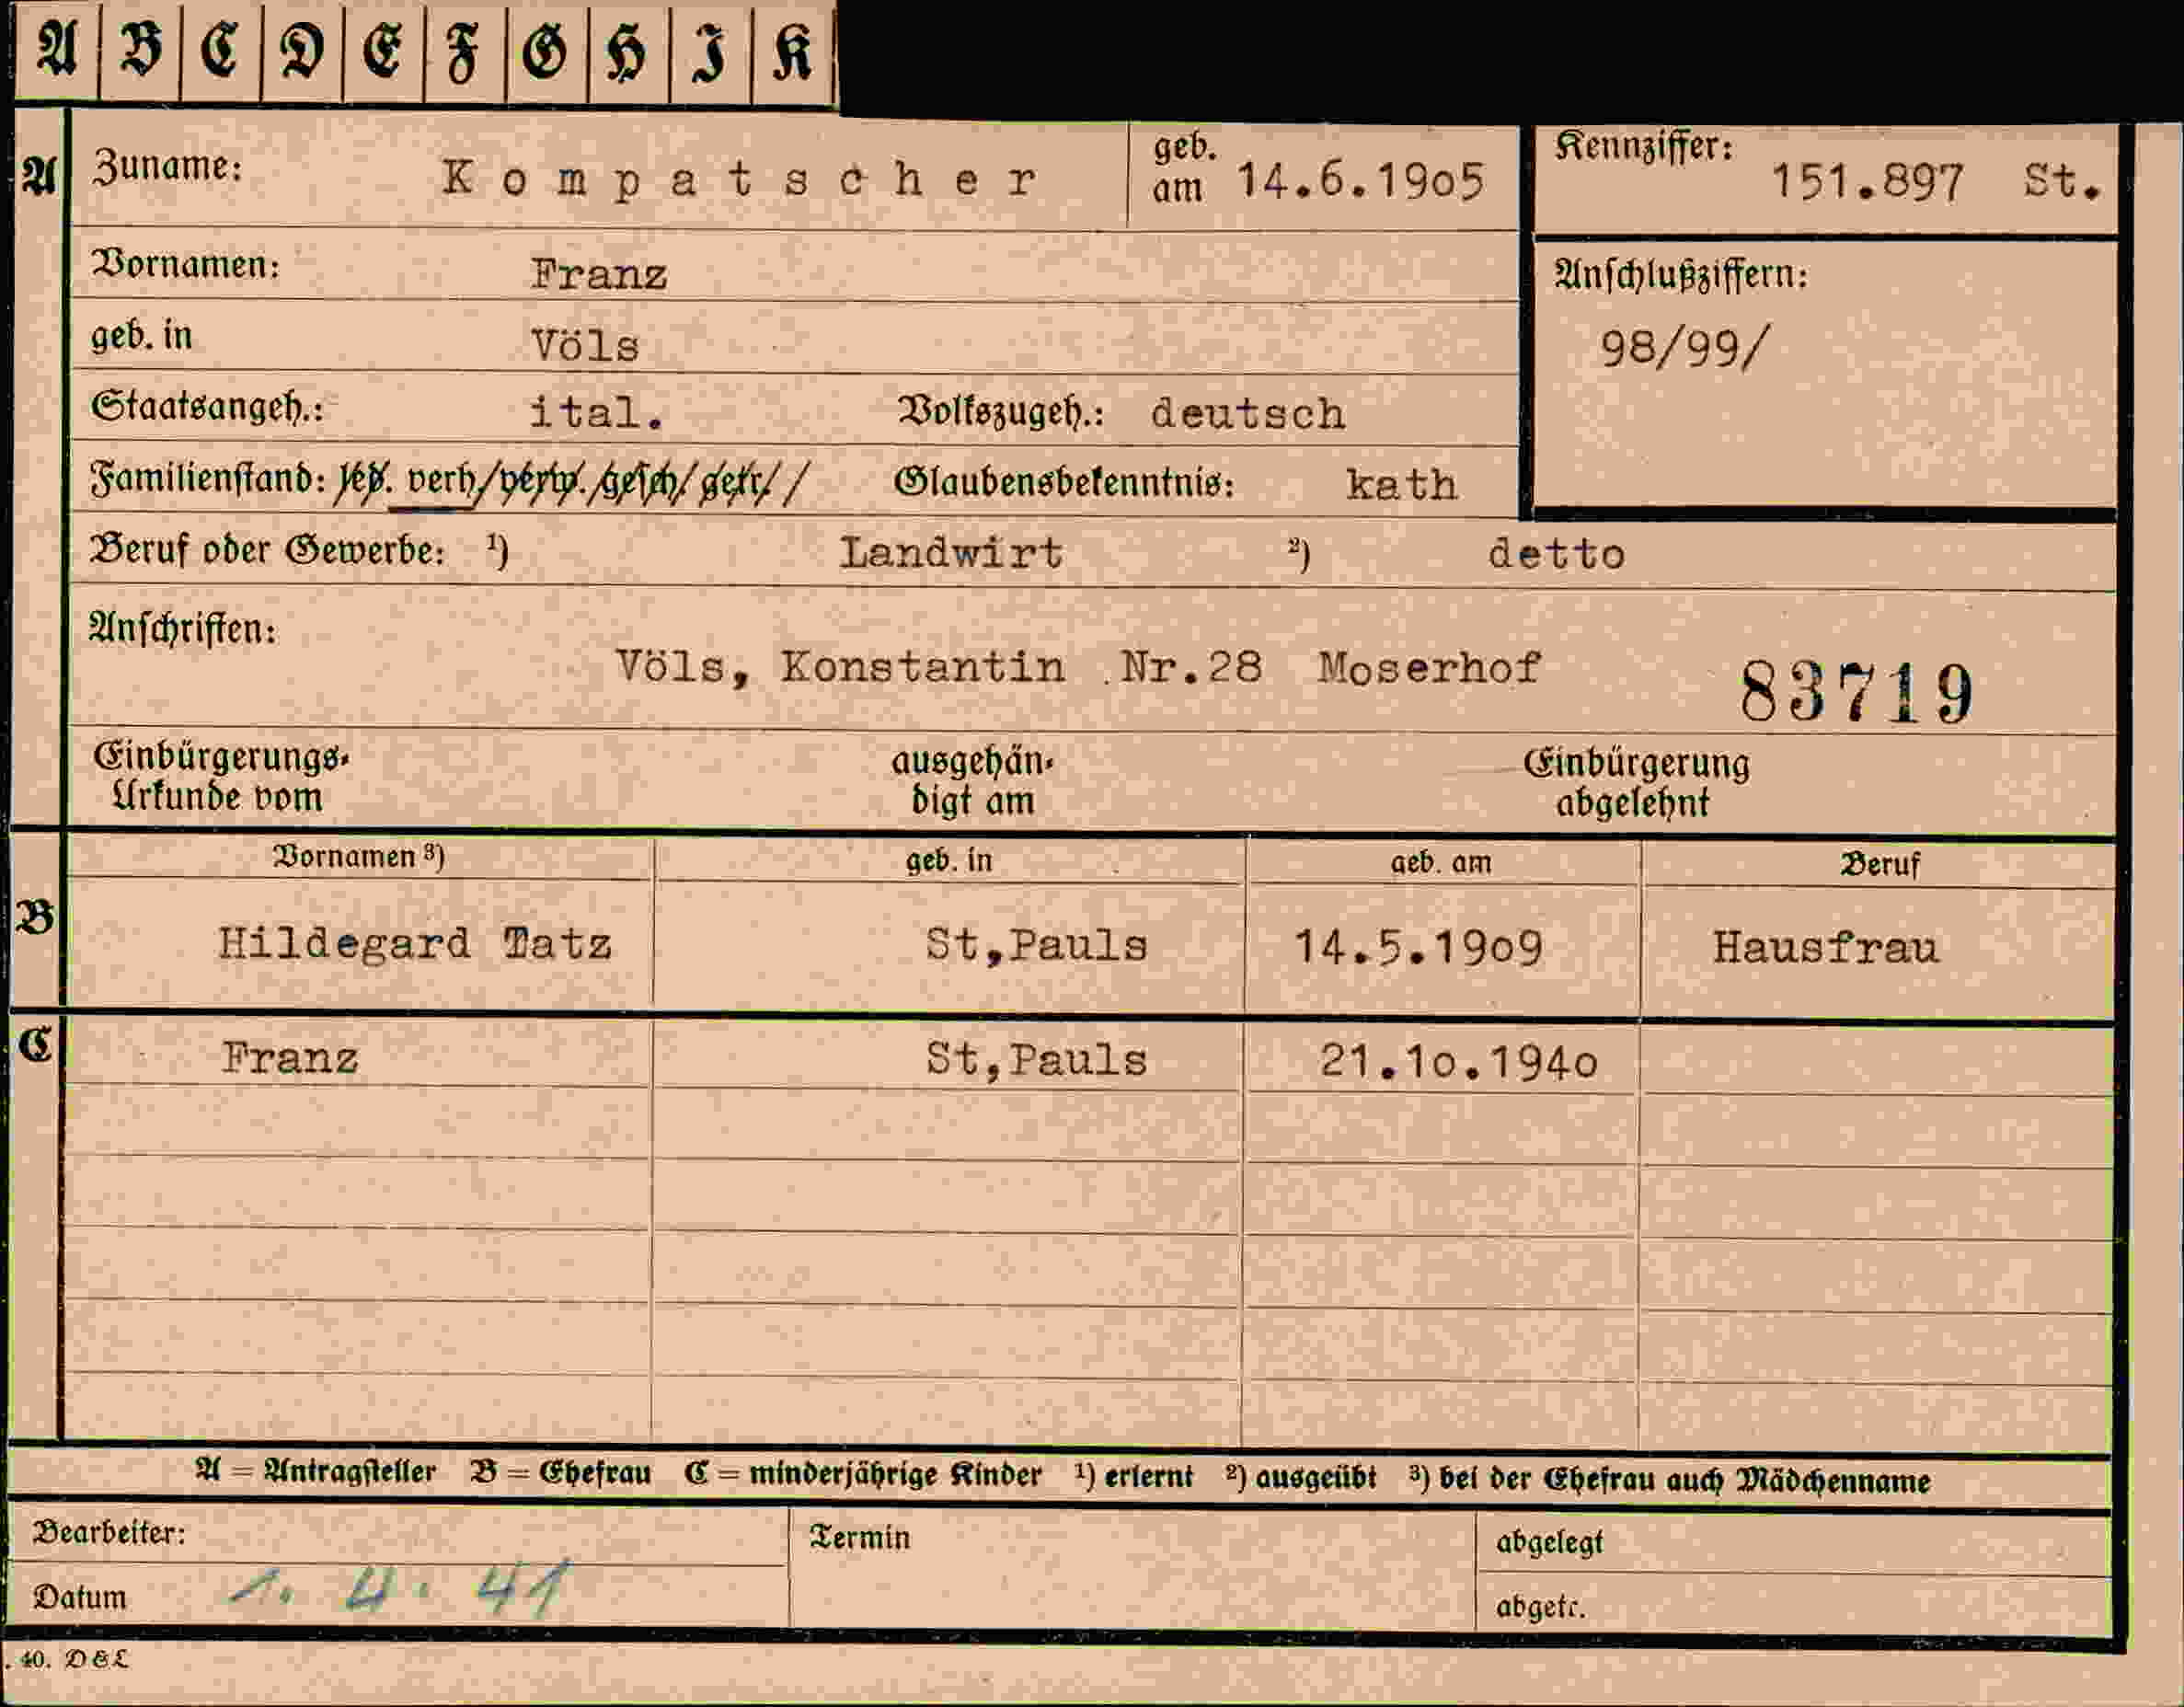 A B C D E F G H I K
A Zuname: Kompatscher geb. am 14.6.1905 Kennziffer: 151.897 St.
Vornamen: Franz
Anschlußziffern:
geb. in Völs
98/99/
Staatsangeh.: ital. Volkszugeh.: deutsch
Familienstand: led. verh/verw./gesch/getr./ Glaubensbekenntnis: kath
Beruf oder Gewerbe: ¹) Landwirt ²) detto
Anschriften:
Völs, Konstantin Nr.28 Moserhof 83719
Einbürgerungs- ausgehän- Einbürgerung
Urkunde vom digt am abgelehnt
Vornamen ³) geb. in geb. am Beruf
B Hildegard Tatz St,Pauls 14.5.1909 Hausfrau
C Franz St,Pauls 21.10.1940
A = Antragsteller B = Ehefrau C = minderjährige Kinder ¹) erlernt ²) ausgeübt ³) bei der Ehefrau auch Mädchenname
Bearbeiter: Termin abgelegt
Datum 1. 4. 41 abgetr.
. 40. D & L